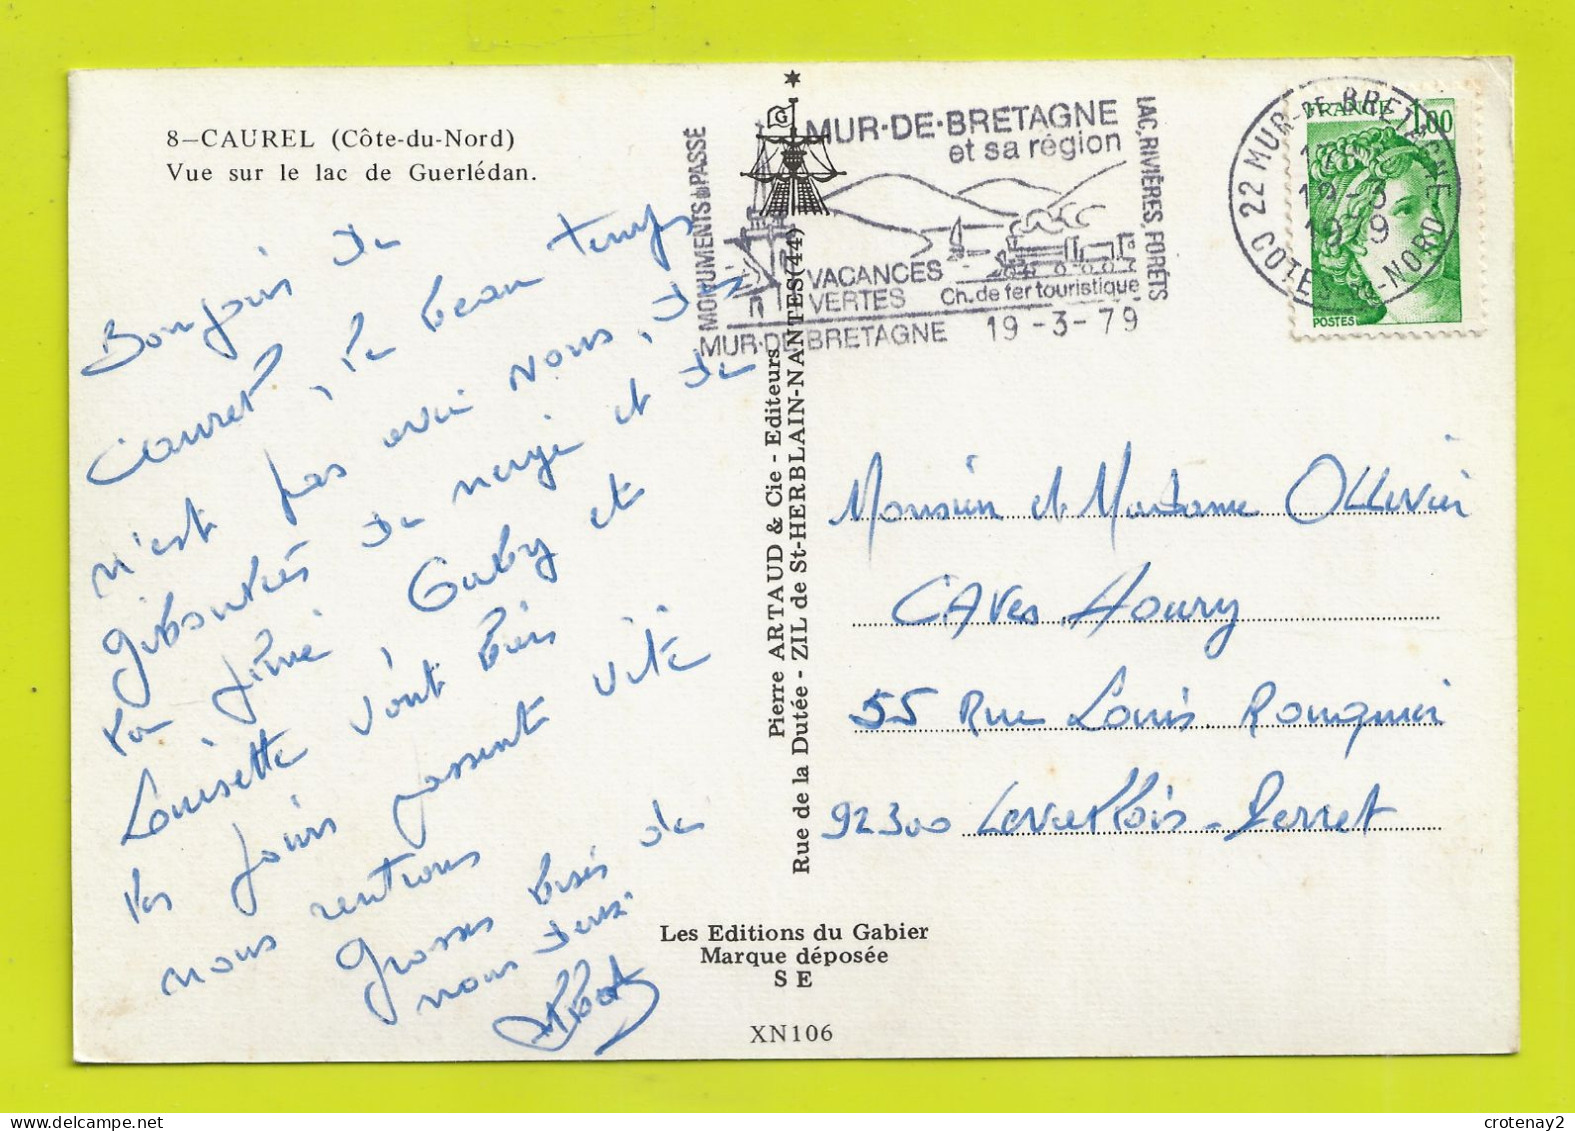 8–CAUREL (Côte-du-Nord)
Vue sur le lac de Guerlédan.
Bonjour de
Caurel, le beau temps
n'est pas avec nous, des
giboulées de neige et de
la pluie Gaby et
Louisette vont bien
les jours passent vite
nous rentrons
grosses bises de
nous deux
Pierre ARTAUD & Cie - Editeurs
Rue de la Dutée - ZIL de St-HERBLAIN-NANTES (44)
Les Editions du Gabier
Marque déposée
S E
XN106
G
MONUMENTS du PASSÉ
MUR-DE-BRETAGNE
et sa région
LAC, RIVIÈRES, FORÊTS
VACANCES
VERTES
Ch. de fer touristique
MUR-DE-BRETAGNE 19-3-79
22 MUR-DE-BRETAGNE
19-3
1979
COTES-DU-NORD
FRANCE 1,00
POSTES
Monsieur et Madame OLLIVIER
CAVES Houry
55 Rue Louis Rouquier
92300 Levallois-Perret
crotenay2